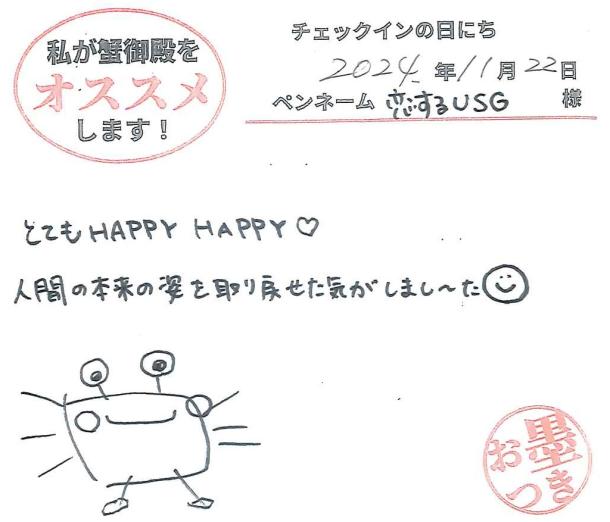 私が蟹御殿を
オススメ
します！
チェックインの日にち
2024年11月22日
ペンネーム 恋するUSG 様
とてもHAPPY HAPPY♡
人間の本来の姿を取り戻せた気がしまし〜た☺
お墨
つき